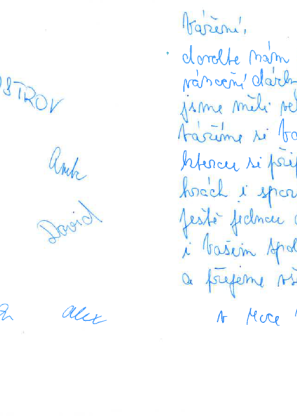 OSTROV
David
alex
Vážení,
dovolte nám
vánoční dárk
jsme měli
Vážíme si Va
kterou si
hrách i spor
ještě jednou
i Vašim spol
a přejeme
v roce